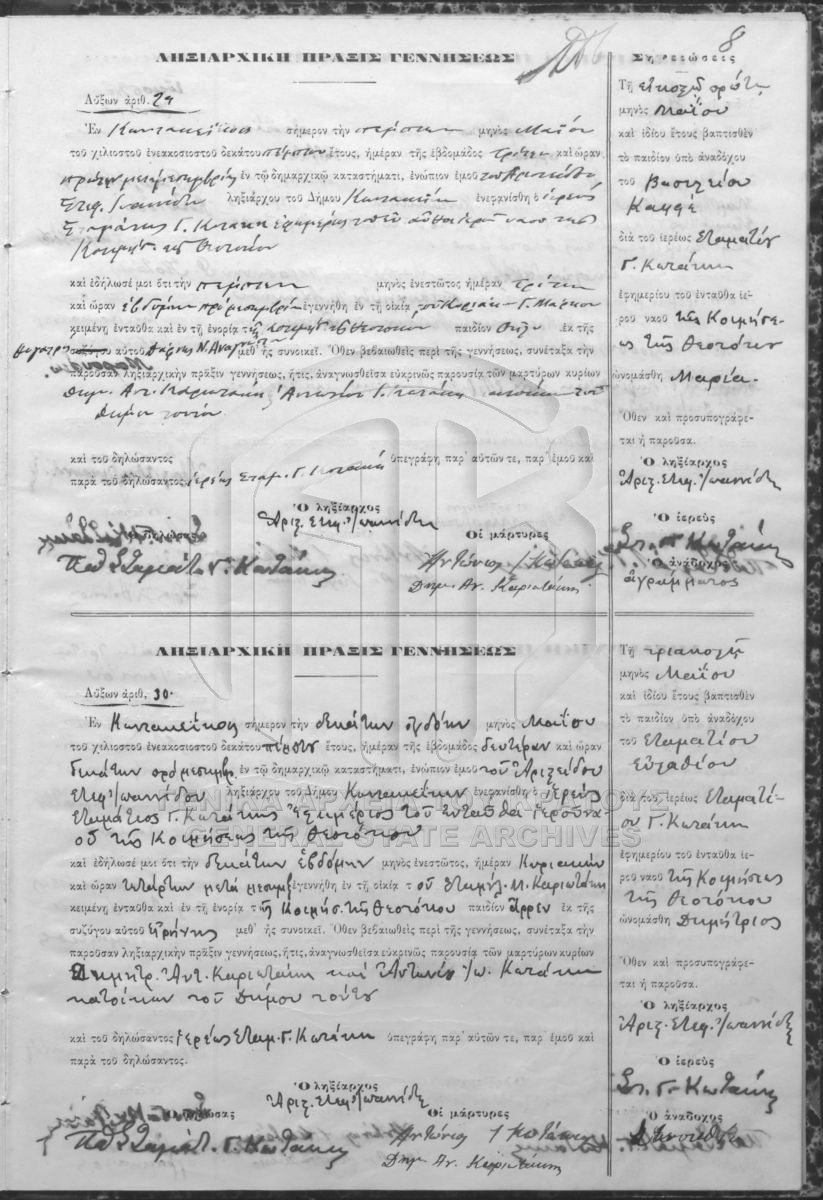 8
ΛΗΞΙΑΡΧΙΚΗ ΠΡΑΞΙΣ ΓΕΝΝΗΣΕΩΣ
Αὔξων ἀριθ. 29
Ἐν σήμερον τὴν πέμπτην μηνὸς Μαΐου
τοῦ χιλιοστοῦ ἐννεακοσιοστοῦ δεκάτου πέμπτου ἔτους, ἡμέραν τῆς ἑβδομάδος Τρίτην καὶ ὥραν
ἐν τῷ δημαρχικῷ καταστήματι, ἐνώπιον ἐμοῦ τοῦ
ληξιάρχου τοῦ Δήμου ἐνεφανίσθη ὁ ἱερεὺς
Σταμάτιος Γ. Κωτάκης ἐφημέριος τοῦ ἐνταῦθα ἱεροῦ ναοῦ τῆς
Κοιμήσ. τῆς Θεοτόκου
καὶ ἐδήλωσέ μοι ὅτι τὴν πέμπτην μηνὸς ἐνεστῶτος ἡμέραν τρίτην
καὶ ὥραν ἑβδόμην ἐγεννήθη ἐν τῇ οἰκίᾳ τοῦ Γ. Μάρκου
κειμένῃ ἐνταῦθα καὶ ἐν τῇ ἐνορίᾳ τῆς Κοιμήσ. τῆς Θεοτόκου παιδίον θῆλυ ἐκ τῆς
αὐτοῦ μεθ᾽ ἧς συνοικεῖ. Ὅθεν βεβαιωθεὶς περὶ τῆς γεννήσεως, συνέταξα τὴν
παροῦσαν ληξιαρχικὴν πρᾶξιν γεννήσεως, ἥτις, ἀναγνωσθεῖσα εὐκρινῶς παρουσίᾳ τῶν μαρτύρων κυρίων
Δημ. Αντ. Καριωτάκη Ἀντωνίου Ι. Κωτάκη κατοίκων τοῦ
Δήμου τούτου
καὶ τοῦ δηλώσαντος ὑπεγράφη παρ᾽ αὐτῶν τε, παρ᾽ ἐμοῦ καὶ
παρὰ τοῦ δηλώσαντος. ἱερέως Σταμ. Γ. Κωτάκη
Ὁ ληξίαρχος
Ἀριζ. Στεφ. Ἰωαννίδης
Ὁ δηλώσας
Οἱ μάρτυρες
Παπ Σταμάτ. Γ. Κωτάκης
Ἀντώνιος Ι Κωτάκης
Δημ. Αν. Καριωτάκης
Σημειώσεις
Τῇ εἰκοστῇ πρώτῃ
μηνὸς Μαΐου
καὶ ἰδίου ἔτους βαπτισθὲν
τὸ παιδίον ὑπὸ ἀναδόχου
τοῦ Βασιλείου
διὰ τοῦ ἱερέως Σταματίου
Γ. Κωτάκη
ἐφημερίου τοῦ ἐνταῦθα ἱε-
ροῦ ναοῦ τῆς Κοιμήσε-
ως τῆς Θεοτόκου
ὠνομάσθη Μαρία.
Ὅθεν καὶ προσυπογράφε-
ται ἡ παροῦσα.
Ὁ ληξίαρχος
Ἀριζ. Στεφ. Ἰωαννίδης
Ὁ ἱερεὺς
Στ. Γ. Κωτάκης
Ὁ ἀνάδοχος
ἀγράμματος
ΛΗΞΙΑΡΧΙΚΗ ΠΡΑΞΙΣ ΓΕΝΝΗΣΕΩΣ
Αὔξων ἀριθ. 30.
Ἐν σήμερον τὴν δεκάτην ὀγδόην μηνὸς Μαΐου
τοῦ χιλιοστοῦ ἐννεακοσιοστοῦ δεκάτου πέμπτου ἔτους, ἡμέραν τῆς ἑβδομάδος Δευτέραν καὶ ὥραν
δεκάτην πρὸ μεσημβρ. ἐν τῷ δημαρχικῷ καταστήματι, ἐνώπιον ἐμοῦ τοῦ Ἀριζείδου
Στεφ. Ἰωαννίδου ληξιάρχου τοῦ Δήμου ἐνεφανίσθη ὁ ἱερεὺς
Σταμάτιος Γ. Κωτάκης Ἐφημέριος τοῦ ἐνταῦθα ἱεροῦ να-
οῦ τῆς Κοιμήσεως τῆς Θεοτόκου
καὶ ἐδήλωσέ μοι ὅτι τὴν δεκάτην ἑβδόμην μηνὸς ἐνεστῶτος, ἡμέραν Κυριακὴν
καὶ ὥραν τετάρτην μετὰ μεσημβ. ἐγεννήθη ἐν τῇ οἰκίᾳ τοῦ Μ. Καριωτάκη
κειμένῃ ἐνταῦθα καὶ ἐν τῇ ἐνορίᾳ τῆς Κοιμήσ. τῆς Θεοτόκου παιδίον ἄρρεν ἐκ τῆς
συζύγου αὐτοῦ Εἰρήνης μεθ᾽ ἧς συνοικεῖ. Ὅθεν βεβαιωθεὶς περὶ τῆς γεννήσεως, συνέταξα τὴν
παροῦσαν ληξιαρχικὴν πρᾶξιν γεννήσεως, ἥτις, ἀναγνωσθεῖσα εὐκρινῶς παρουσίᾳ τῶν μαρτύρων κυρίων
Δημητρ. Ἀντ. Καριωτάκη καὶ Ἀντωνίου Ἰω. Κωτάκη
κατοίκων τοῦ Δήμου τούτου
καὶ τοῦ δηλώσαντος ἱερέως Σταμ. Γ. Κωτάκη ὑπεγράφη παρ᾽ αὐτῶν τε, παρ᾽ ἐμοῦ καὶ
παρὰ τοῦ δηλώσαντος.
Ὁ ληξίαρχος
Ἀριζ. Στεφ. Ἰωαννίδης
Ὁ δηλώσας
Οἱ μάρτυρες
Παπ Σταμάτ. Γ. Κωτάκης
Ἀντώνιος Ι Κωτάκης
Δημ. Αν. Καριωτάκης
Τῇ τριακοστῇ
μηνὸς Μαΐου
καὶ ἰδίου ἔτους βαπτισθὲν
τὸ παιδίον ὑπὸ ἀναδόχου
τοῦ Σταματίου
Εὐσταθίου
διὰ τοῦ ἱερέως Σταματί-
ου Γ. Κωτάκη
ἐφημερίου τοῦ ἐνταῦθα ἱε-
ροῦ ναοῦ τῆς Κοιμήσεως
τῆς Θεοτόκου
ὠνομάσθη Δημήτριος
Ὅθεν καὶ προσυπογράφε-
ται ἡ παροῦσα.
Ὁ ληξίαρχος
Ἀριζ. Στεφ. Ἰωαννίδης
Ὁ ἱερεὺς
Στ. Γ. Κωτάκης
Ὁ ἀνάδοχος
ΓΕΝΙΚΑ ΑΡΧΕΙΑ ΤΟΥ ΚΡΑΤΟΥΣ
GENERAL STATE ARCHIVES